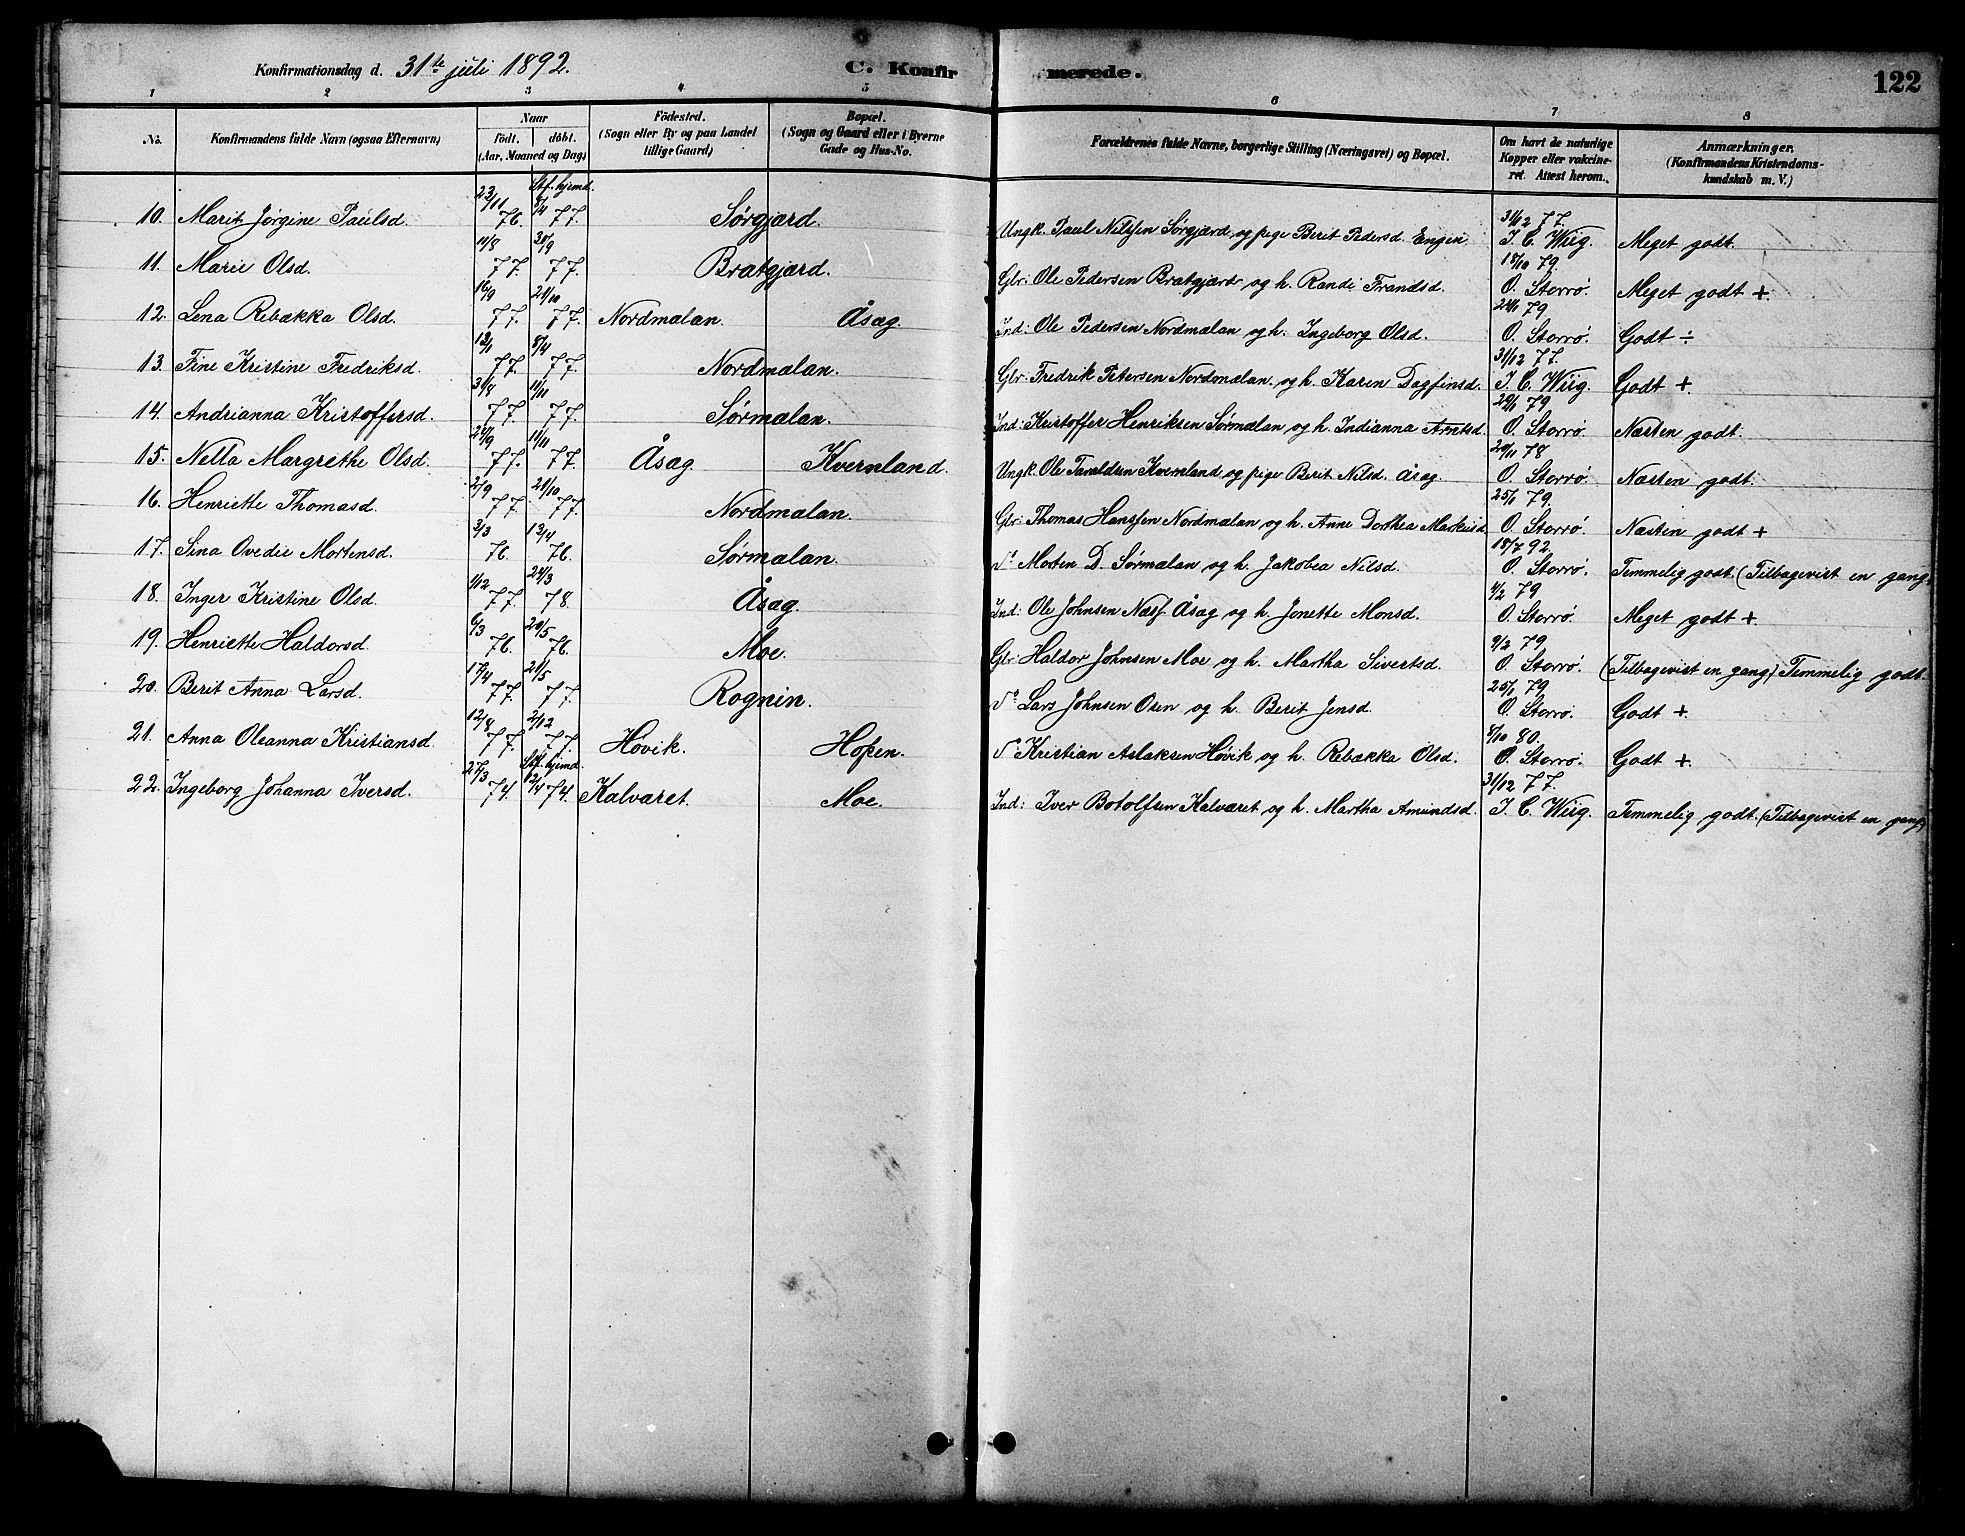 Konfirmationsdag d. 31te juli 1892.
C. Konfirmerede.
122
1 2 3 4 5 6 7 8
No. Konfirmandens fulde Navn (ogsaa Efternavn) Naar födt. döbt. (Aar, Maaned og Dag) Födested. (Sogn eller By og paa Landet tillige Gaard) Bopæl. (Sogn og Gaard eller i Byerne Gade og Hus-No. Forældrenes fulde Navne, borgerlige Stilling (Næringsvei) og Bopæl. Om havt de naturlige Kopper eller vakcineret. Attest herom. Anmærkninger. (Konfirmandens Kristendomskundskab m. V.)
10. Marit Jørgine Paulsd. 23/11 76. Stf. hjemd. 8/4 77. Sørgjærd. Ungk. Paul Nilssen Sørgjærd og pige Berit Pedersd. Engen. 31/12 77. I. C. Wiig. Meget godt.
11. Marie Olsd. 11/8 77. 30/9 77. Bratgjærd. Gbr: Ole Pedersen Bratgjærd og h. Randi Frandsd. 18/10 79. O. Storrø. Meget godt +
12. Lena Rebækka Olsd. 16/9 77. 21/10 77. Nordmælan. Åsæg. Ind: Ole Pedersen Nordmælan og h. Ingeborg Olsd. 24/1 79 O. Storrø. Godt ÷
13. Fine Kristine Fredriksd. 12/1 77. 8/4 77. Nordmælan. Gbr: Fredrik Petersen Nordmælan og h. Karen Dagfinsd. 31/12 77. I. C. Wiig. Godt +
14. Andrianna Kristoffersd. 31/8 77. 11/11 77. Sørmælan. Ind: Kristoffer Henriksen Sørmælan og h. Indianna Arntsd. 29/1 79 O. Storrø. Næsten godt.
15. Netta Margrethe Olsd. 24/9 77. 11/11 77. Åsæg. Kvernland. Ungk. Ole Taraldsen Kvernland og pige Berit Nilsd. Åsæg. 29/11 78 O. Storrø Næsten godt.
16. Henriette Thomasd. 2/9 77. 21/10 77. Nordmælan. Gbr: Thomas Hanssen Nordmælan og h. Anne Dorthea Markusd. 25/1 79. O. Storrø. Næsten godt +
17. Sina Ovedie Mortensd. 3/3 76. 13/4 76. Sørmælan. Do Morten D. Sørmælan og h. Jakobea Nilsd. 18/7 92. O. Storrø. Temmelig godt. (Tilbagevist en gang.
18. Inger Kristine Olsd. 1/12 77. 24/3 78. Åsæg. Ind: Ole Johnsen Næss Åsæg og h. Jonette Monsd. 4/2 79 O. Storrø. Meget godt +.
19. Henriette Haldorsd. 6/3 76. 20/5 76. Moe. Gbr: Haldor Johnsen Moe og h. Martha Sivertsd. 9/2 79 O. Storrø. (Tilbagevist en gang) Temmelig godt.
20. Berit Anna Larsd. 17/4 77. 21/5 77. Rognin. Do Lars Johnsen Osen og h. Berit Jensd. 25/1 79 O. Storrø. Godt +
21. Anna Oleanna Kristiansd. 12/8 77. 2/12 77. Hovik. Hopen. Do Kristian Aslaksen Hovik og h. Rebækka Olsd. 8/10 80. O. Storrø. Godt +
22. Ingeborg Johanna Iversd. 27/3 74. Stf. hjemd. 12/4 74. Kalværet. Moe. Ind: Iver Botolfsen Kalværet og h. Martha Amundsd. 31/12 77. I. C. Wiig. Temmelig godt. (Tilbagevist en gang)